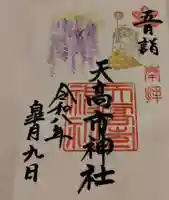 音詣
奉拝
天高市神社
令和八年
皐月九日